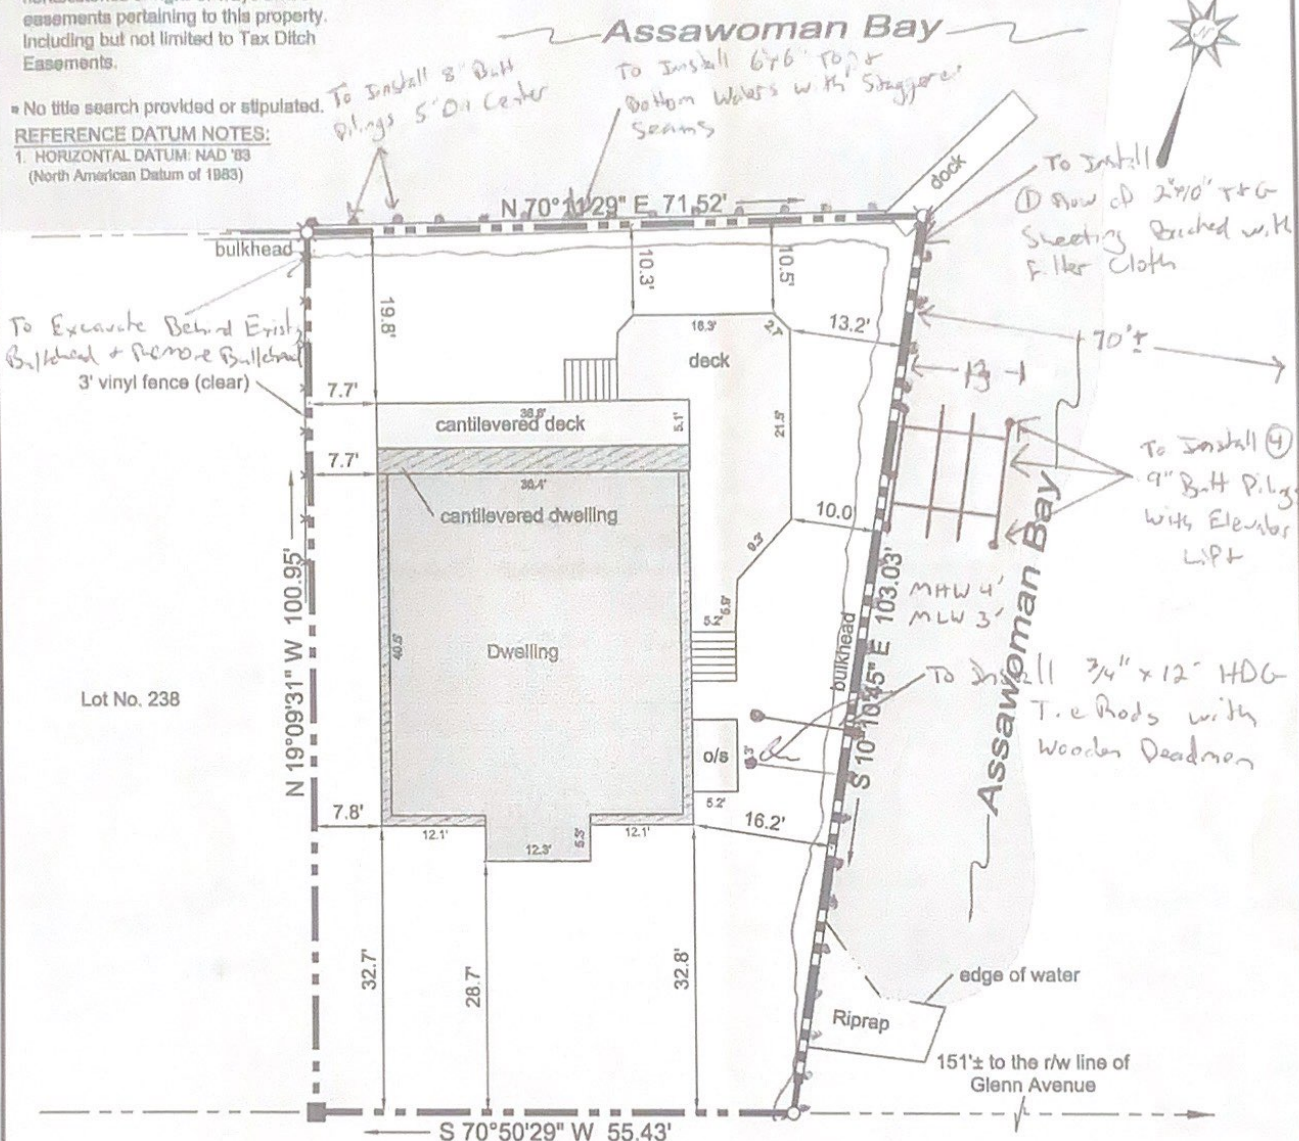 easements pertaining to this property.
Including but not limited to Tax Ditch
Easements.
No title search provided or stipulated.
REFERENCE DATUM NOTES:
1. HORIZONTAL DATUM: NAD '83
(North American Datum of 1983)
Assawoman Bay
To Install 8" Butt
Pilings 5' On Center
To Install 6x6" Top &
Bottom Walers with Stagger
Seams
dock
To Install
① Row of 2"x10" T+G
Sheeting Backed with
Filter Cloth
N 70°11'29" E 71.52'
bulkhead
19.8'
10.3'
10.5'
To Excavate Behind Exist
Bulkhead + Remove Bulkhead
3' vinyl fence (clear)
16.3'
13.2'
deck
70'±
13
7.7'
cantilevered deck
5.1'
21.5'
7.7'
cantilevered dwelling
10.0
9.3'
To Install ④
9" Butt Pilings
with Elevator
Lift
MHW 4'
MLW 3'
N 19°09'31" W 100.95'
40.5'
Dwelling
5.2'
bulkhead
S 10°10'45" E 103.03'
Assawoman Bay
Lot No. 238
To Install 3/4" x 12' HDG
Tie Rods with
Wooden Deadmen
o/s
5.2'
7.8'
12.1'
12.3'
5.3'
12.1'
16.2'
32.7'
28.7'
32.8'
edge of water
Riprap
151'± to the r/w line of
Glenn Avenue
S 70°50'29" W 55.43'